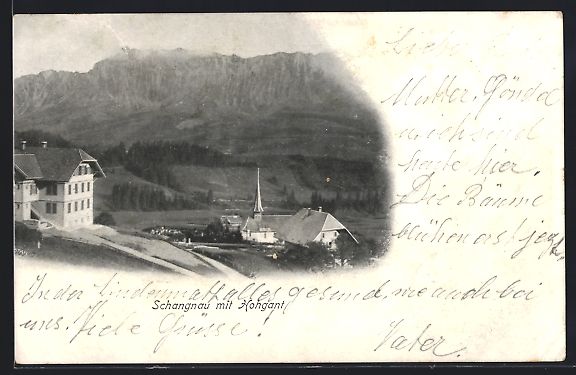 Liebe
Mutter. Göndel
u. ich sind
heute hier.
Die Bäume
blühen erst jezt.
In der Lindenmatt alles gesund, wie auch bei
Schangnau mit Hohgant
uns. Viele Grüsse!
Vater.